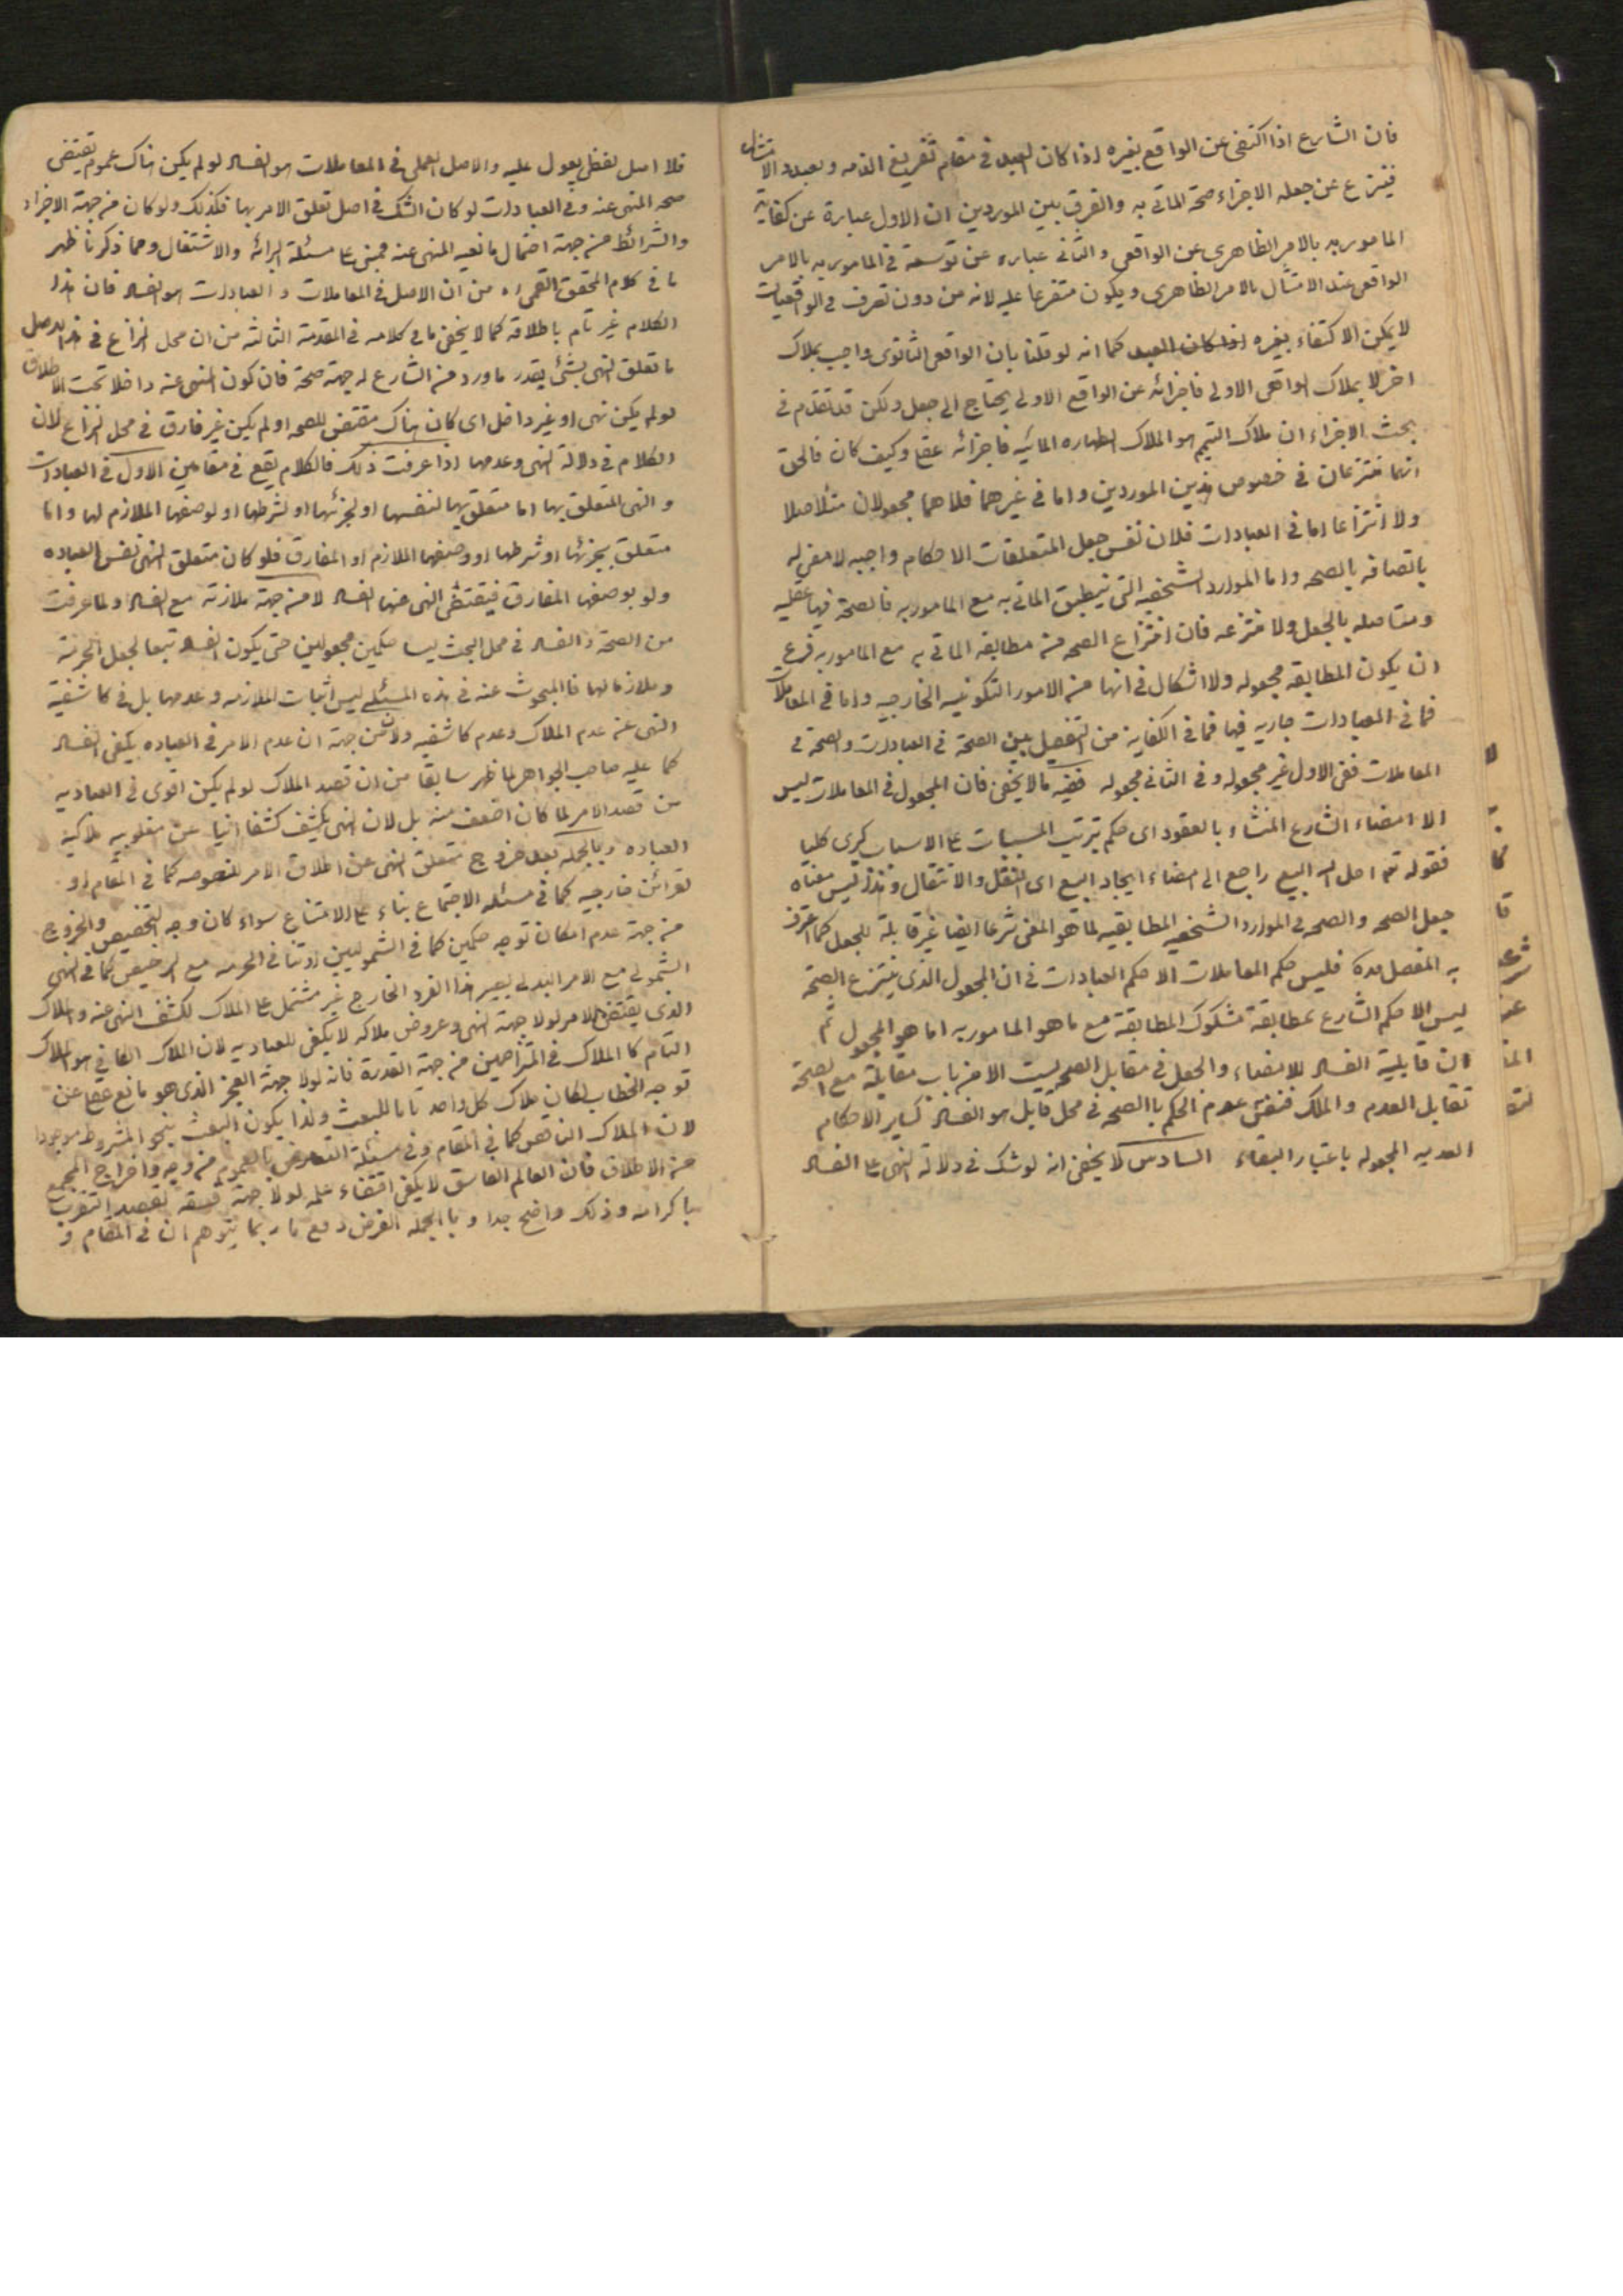 فان الشارع اذا اكتفى عن الواقع بغيره اذا كان العبد فى مقام تفريغ الذمه وبصدد الامتثال
فينزع عن جعله الاجزاء صحة الماتى به والفرق بين الموردين ان الاول عبارة عن كفاية
المامور به بالامر الظاهرى عن الواقعى والثانى عباره عن توسعة فى المامور به بالامر
الواقعى عند الامتثال بالامر الظاهرى ويكون متفرعا عليه لانه من دون تصرف فى الواقعيات
لا يمكن الاكتفاء بغيره اذا كان العبد كما انه لو قلنا بان الواقعى الثانوى واجب بملاك
اخر لا بملاك الواقعى الاولى فاجزائه عن الواقع الاولى يحتاج الى جعل ولكن قد تقدم فى
بحث الاجزاء ان ملاك التيمم هو الملاك الطهاره المائيه فاجزائه عقلى وكيف كان فالحق
انهما منتزعان فى خصوص هذين الموردين واما فى غيرهما فلا هما مجعولان متاصلا
ولا انتزاعا اما فى العبادات فلان نفس جعل المتعلقات الاحكام واجبه لا معنى له
باتصافه بالصحه واما الموارد الشخصيه التى ينطبق الماتى به مع المامور به فالصحة فيها عقليه
ومتاصله بالجعل ولا منتزعه فان انتزاع الصحه من مطابقه الماتى به مع المامور به فرع
ان يكون المطابقه مجعوله ولا اشكال فى انها من الامور التكوينيه الخارجيه واما فى المعاملات
فما فى العبادات جاريه فيها فما فى الكفاية من التفصيل بين الصحة فى العبادات والصحة فى
المعاملات ففى الاول غير مجعوله وفى الثانى مجعوله ففيه مالا يخفى فان المجعول فى المعاملات ليس
الا امضاء الشارع المنشاء بالعقود اى حكم بترتب المسببات على الاسباب كبرى كليا
فقوله تع احل الله البيع راجع الى امضاء ايجاد البيع اى النقل والانتقال و ليس معناه
جعل الصحه والصحه فى الموارد الشخصيه المطابقيه لما هو الممضى شرعا ايضا غير قابلة للجعل كما اعترف
به المفصل فليس حكم المعاملات الا حكم العبادات فى ان المجعول الذى ينتزع الصحة
ليس الا حكم الشارع بمطابقة مشكوك المطابقة مع ما هو المامور به اما هو المجعول ثم
ان قابلية الفساد للامضاء والجعل فى مقابل الصحه ليست الا من باب مقابلة مع الصحة
تقابل العدم والملكه فنفس عدم الحكم با الصحه فى محل قابل هو الفساد كساير الاحكام
العدميه المجعوله باعتبار البقاء السادس لا يخفى انه لو شك فى دلالة النهى على الفساد
فلا اصل لفظى يعول عليه والاصل العملى فى المعاملات هو الفساد لو لم يكن هناك عموم يقتضى
صحه المنهى عنه وفى العبادات لو كان الشك فى اصل تعلق الامر بها فكذلك ولو كان من جهة الاجزاء
والشرائط من جهة احتمال مانعيه المنهى عنه فمبنى على مسئلة البرائه والاشتغال ومما ذكرنا ظهر
ما فى كلام المحقق القمى ره من ان الاصل فى المعاملات والعبادات هو الفساد فان هذا
الكلام غير تام باطلاقه كما لا يخفى ما فى كلامه فى المقدمة الثالثه من ان محل النزاع فى
ما تعلق النهى بشئ بقدر ماورد من الشارع له جهة صحة فان كون المنهى عنه داخلا تحت الاطلاق
لو لم يكن نهى او غير داخل اى كان هناك مقتضى للصحه او لم يكن غير فارق فى محل النزاع لان
الكلام فى دلالة النهى وعدمها اذا عرفت ذلك فالكلام يقع فى مقامين الاول فى العبادات
والنهى المتعلق بها اما متعلق بها لنفسها او لجزئها او لشرطها او لوصفها الملازم لها واما
متعلق بجزئها او شرطها او وصفها الملازم او المفارق فلو كان متعلق النهى نفس العباده
ولو بوصفها المفارق فيقتضى النهى عنها الفساد لا من جهة ملازمته مع الفساد ولما عرفت
من الصحة والفساد فى محل البحث ليسا حكمين مجعولين حتى يكون الفساد تبعا لجعل الحرمة
وملازما لها فالمبحوث عنه فى هذه المسئله ليس اثبات الملازمه وعدمها بل فى كاشفية
النهى عن عدم الملاك وعدم كاشفيه ولا من جهة ان عدم الامر فى العباده يكفى الفساد
كما عليه صاحب الجواهر لما ظهر سابقا من ان قصد الملاك لو لم يكن اقوى فى العباديه
من قصد الامر لما كان اضعف منه بل لان النهى يكشف كشفا انيا عن مغلوبيه ملاكية
العباده وبالجمله بعد خروج متعلق النهى عن اطلاق الامر للنصوصه كما فى المقام او
لقرائن خارجيه كما فى مسئله الاجتماع بناء على الامتناع سواء كان وجه التخصيص والخروج
من جهة عدم امكان توجه حكمين كما فى الشموليين او تنافى الحرمه مع الترخيص كما فى النهى
الشمولى مع الامر البدلى يصير هذا الفرد الخارج غير مشتمل على الملاك لكشف النهى عنه والملاك
الذى يقتضى الامر لولا جهة النهى وعروض ملاكه لا يكفى للعباديه لان الملاك الكافى هو الملاك
التام كا الملاك فى المتزاحمين من جهة القدرة فانه لولا جهة العجز الذى هو مانع عقلى عن
توجه الخطاب لكان ملاك كل واحد تاما للبعث ولذا يكون البعث بنحو المشروط موجودا
لان الملاك الناقص كما فى المقام وفى مسئلة التعارض بالعموم من وجه واخراج المجمع
من الاطلاق فان العالم الفاسق لا يكفى اقتضاء علمه لولا جهة فسقه لقصد التقرب
باكرامه وذلك واضح جدا وبا الجمله الغرض دفع ما ربما يتوهم ان فى المقام و